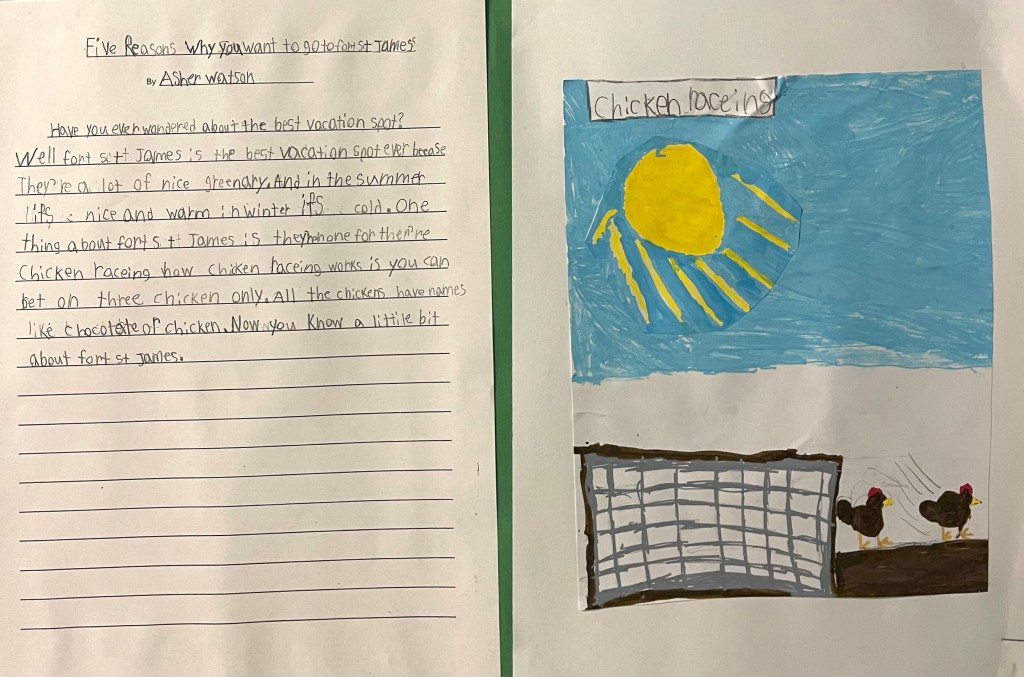 Five Reasons Why you want to go to fort st James
By Asher Watson
Have you ever wondered about the best vacation spot?
Well fort st James is the best vacation spot ever becase
They're a lot of nice greenary. And in the summer
it's nice and warm in winter it's cold. One
thing about fort st James is they for
Chicken raceing how chicken raceing works is you can
bet on three chicken only. All the chickens have names
like chocolate or chicken. Now you Know a little bit
about fort st James.
Chicken raceing